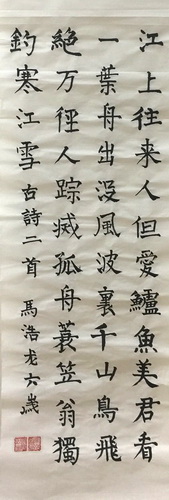 江上往来人但愛鱸魚美君看
一葉舟出没風波裏千山鳥飛
絶万徑人踪滅孤舟蓑笠翁獨
釣寒江雪古詩二首 馬浩戈六歲